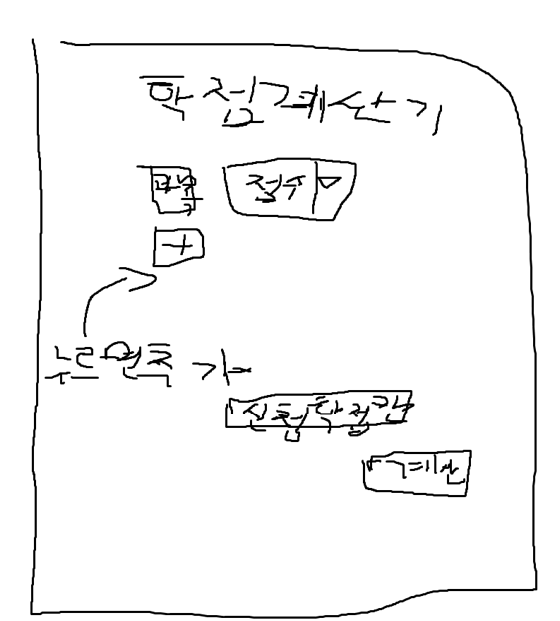 학점계산기
과목 점수 ▽
+
누르면 추가
총학점란
계산